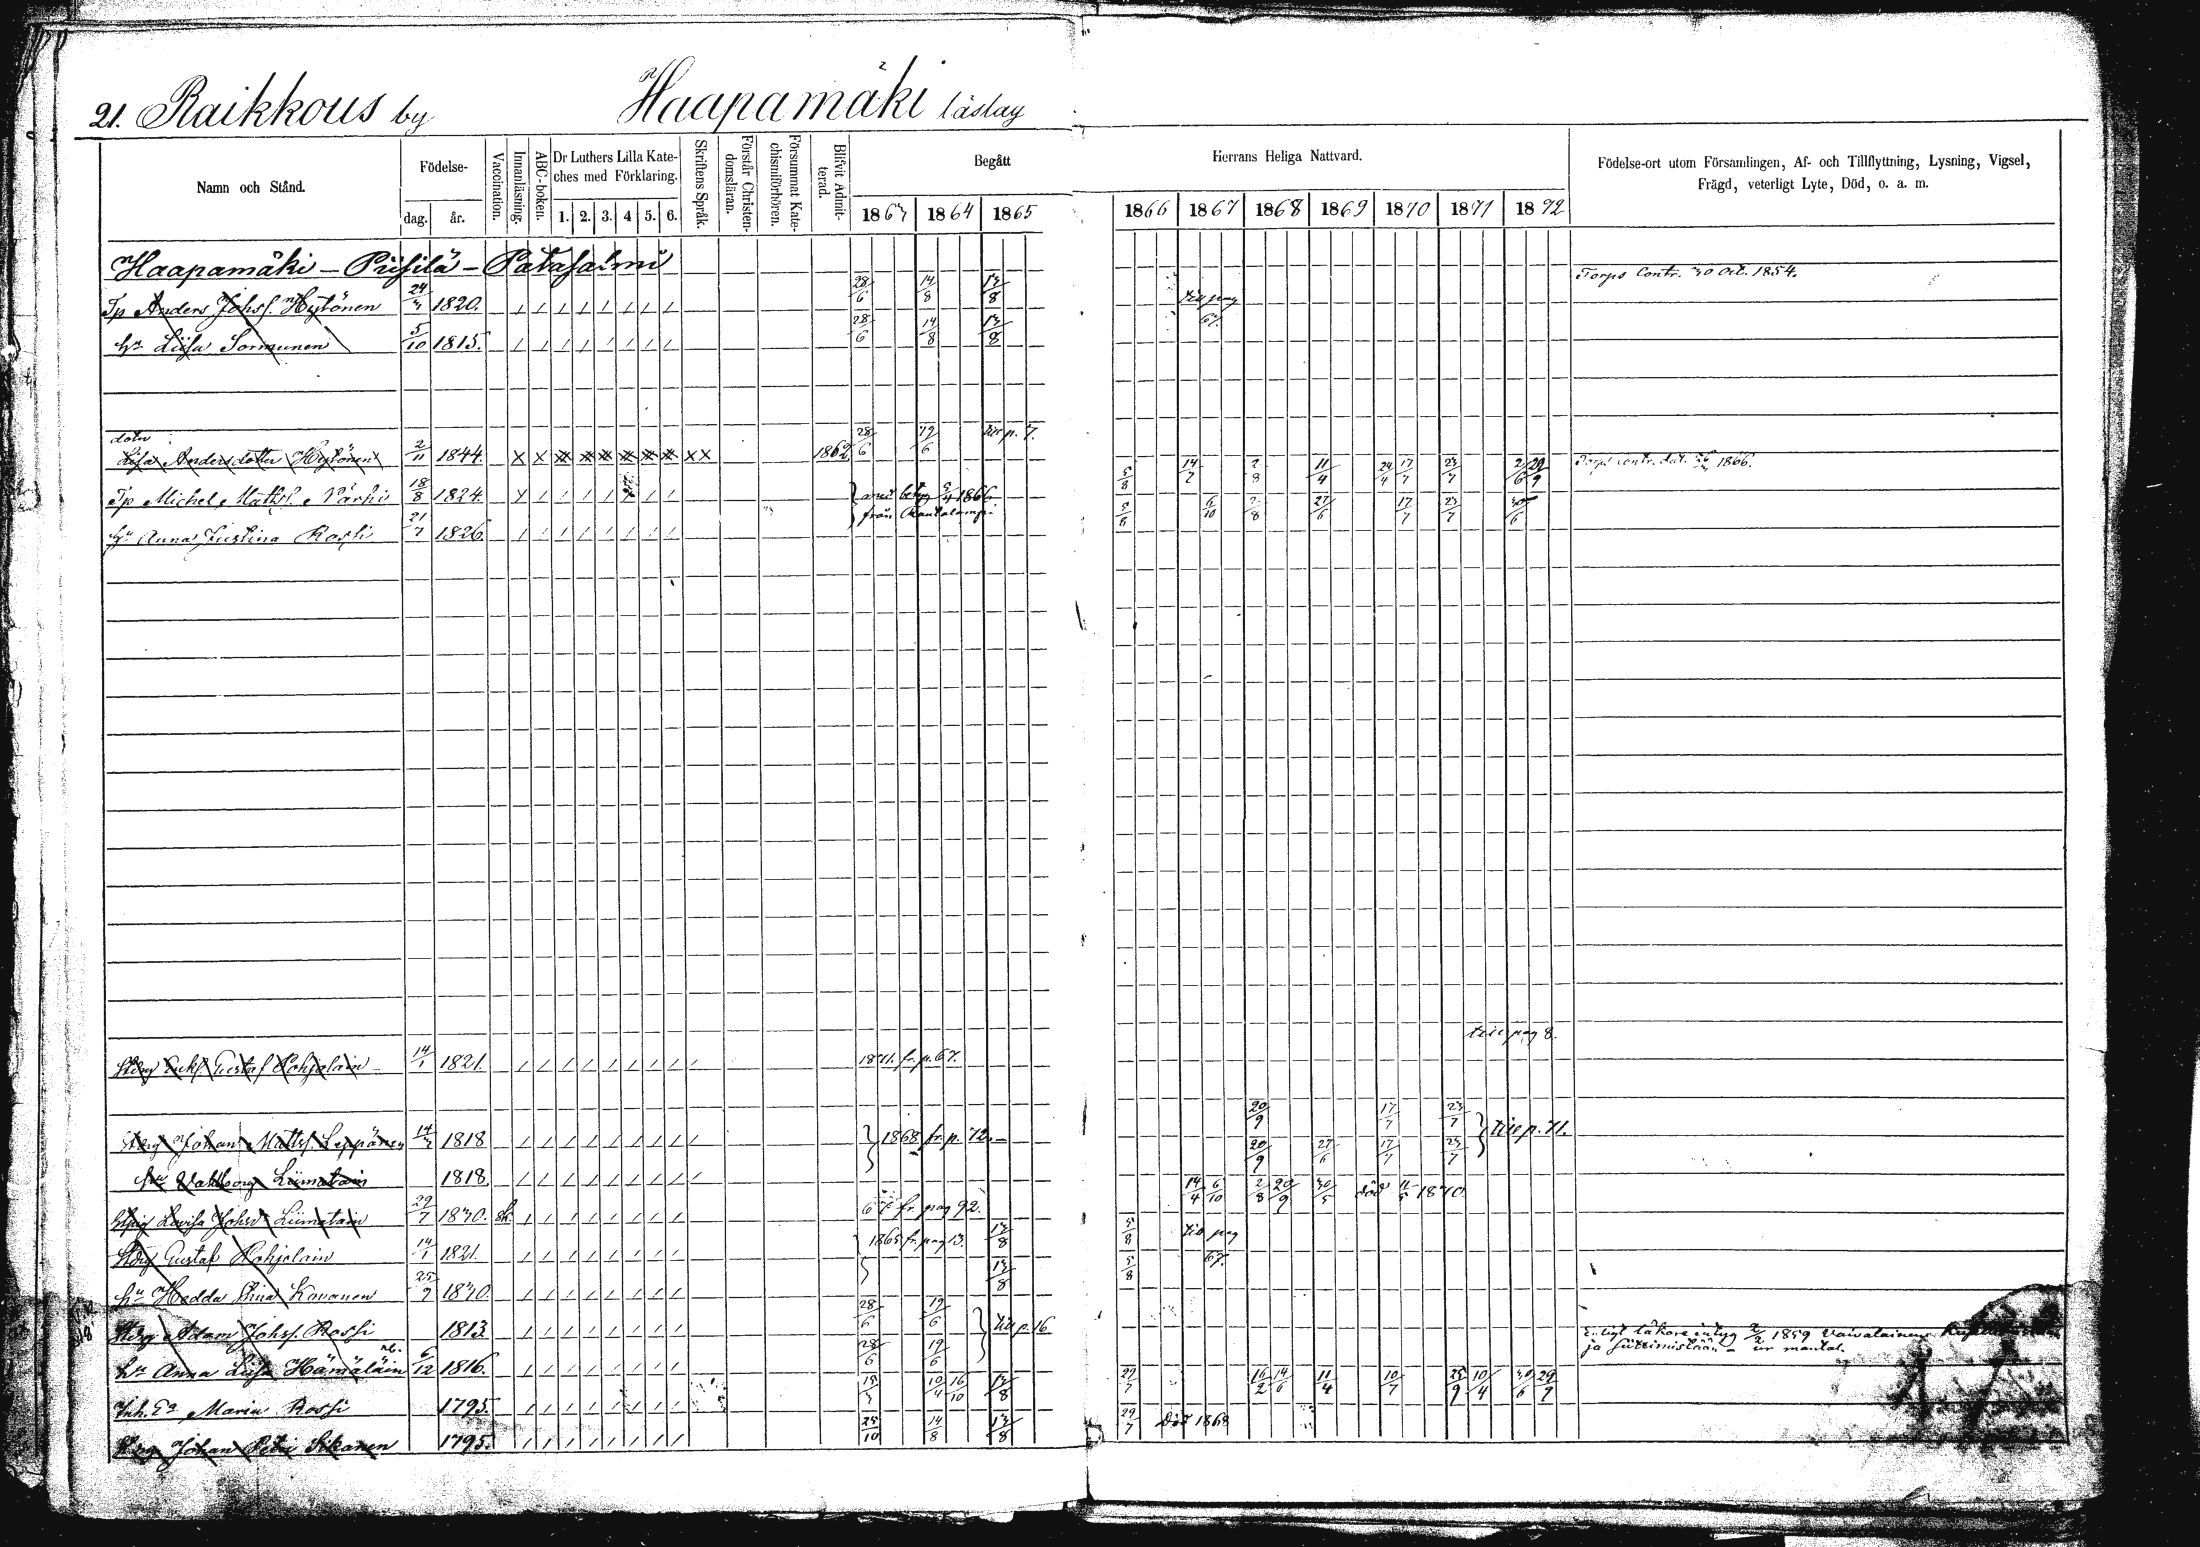 21. Raikkous by Haapamäki läslag
Namn och Stånd.
Födelse-
dag. år.
Vaccination.
Innanläsning.
ABC-boken.
Dr Luthers Lilla Kate-
ches med Förklaring.
1. 2. 3. 4 5. 6.
Skriftens Språk.
Förstår Christen-
domsläran.
Försummat Kate-
chismiförhören.
Blifvit Admit-
terad.
Begått Herrans Heliga Nattvard.
1863 1864 1865 1866 1867 1868 1869 1870 1871 1872
Födelse-ort utom Församlingen, Af- och Tillflyttning, Lysning, Vigsel,
Frägd, veterligt Lyte, Död, o. a. m.
Haapamäki – Piisilä – Patasalmi
Torps Contr. 30 Oct. 1854.
Tp Anders Johss. Hytönen 24/3 1820. 28/6 14/8 13/8 till pag
67.
hu Liisa Sormunen 5/10 1815. 28/6 14/8 13/8
dotn
Lisa Andersdotter Hytönen 2/11 1844. 1862 28/6 19/6 till p. 7.
Tp Michel Mathss. Närhi 18/8 1824. med betyg 5/4 1866 5/8 14/2 2/8 11/4 24/4 17/7 23/7 2/6 29/9 1866.
från Rautalampi
hu Anna Justina Rossi 21/7 1826. 5/8 6/10 2/8 27/6 17/7 23/7 30/6
till pag 8.
Gustaf Pohjolain 14/1 1821. 1871. fr. p. 67.
Johan Mattss. Leppänen 14/3 1818 1868 fr. p. 72. 20/9 17/7 23/7 till p. 71.
hu Valborg Liimatain 1818. 20/9 27/6 17/7 23/7
Lovisa Johsdr Liimatain 29/7 1830. 67 fr pag 92. 14/4 6/10 2/8 20/9 30/5 död 11/5 1870.
Gustaf Pohjolain 14/1 1821. 1865 fr. pag 13. 13/8 5/8 till pag
67.
hu Hedda Stina Kovanen 25/9 1830. 13/8 5/8
Adam Johss. Rossi 1813. 28/6 19/6 till p. 16
hu Anna Liisa Hämäläin 6/12 1816. 28/6 19/6
Enligt läkare intyg 2/2 1859
ur mantal.
Inh. Ea Maria Rossi 1795. 10/4 16/10 13/8 29/7 16/2 14/6 11/4 10/7 25/9 10/4 30/6 29/9
Johan Petri Sikanen 1795. 25/10 14/8 13/8 29/7 död 1868